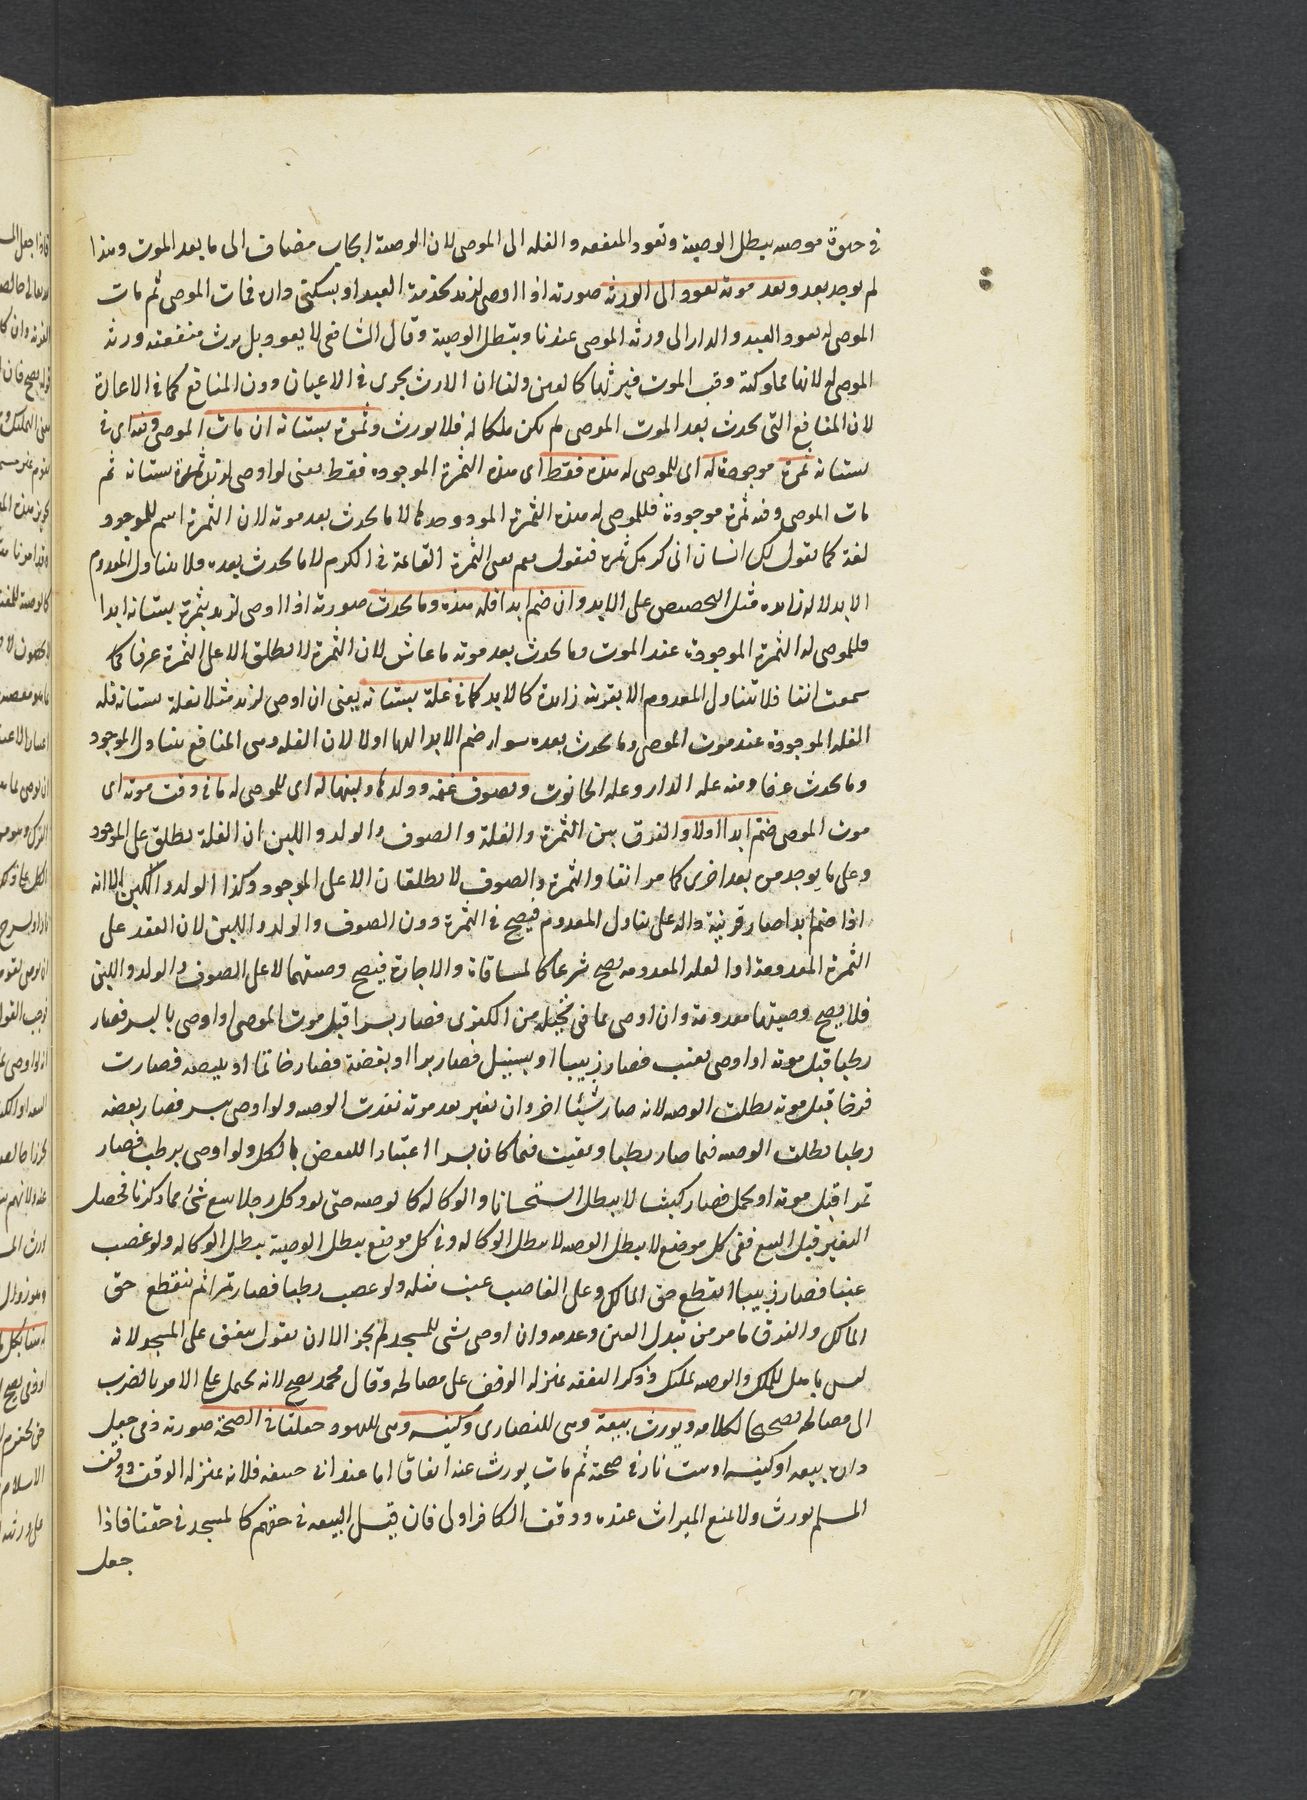 في حيوة موصيه يبطل الوصية وتعود المنفعه والغله الى الموصي لان الوصية ايجاب مضاف الى ما بعد الموت وهذا
لم يوجد بعد وبعد موته تعود الى الورثه صورته اذا اوصى لزيد بخدمة العبد او بسكنى داره فمات الموصي ثم مات
الموصى له يعود العبد والدار الى ورثه الموصي عندنا ويبطل الوصية وقال الشافعي لا يعود بل يرث منفعته ورثه
الموصى له لانها مملوكة وقت الموت فيرثها كالعين ولنا ان الارث يجرى في الاعيان دون المنافع كما في الاعارة
لان المنافع التي يحدث بعد الموت الموصي لم يكن ملكا له فلا يورث وثمرة بستانه ان مات الموصي وفيه اى في
بستانه ثمرة موجودة له اى للموصى له هذه فقط اى هذه الثمرة الموجوده فقط يعنى لو اوصى لزيد ثمرة بستانه ثم
مات الموصي وفيه ثمرة موجودة فللموصى له هذه الثمرة الموجوده لا ما يحدث بعد موته لان الثمرة اسم للموجود
لغة كما يقول لك انسان ثمرة فتقول نعم يعنى الثمرة القائمة في الكرم لا ما يحدث بعده ولا يتناول المعدوم
الا بدلاله زايده مثل التنصيص على الابد وان ضم ابدا فله هذه وما يحدث صورته اذا اوصى لزيد بثمرة بستانه ابدا
فللموصى له الثمرة الموجودة عند الموت وما يحدث بعد موته ما عاش لان الثمرة لا يطلق الا على الثمرة عرفا كما
سمعت انفا فلا تتناول المعدوم الا بقرينه زايدة كالابد كما في غلة بستانه يعنى ان اوصى لزيد مثلا بغلة بستانه فله
الغله الموجودة عند موت الموصي وما يحدث بعده سواء ضم الابد اليها اولا لان الغله وهى المنافع يتناول الموجود
وما يحدث عرفا ومنه غله الدار وغله الحانوت وبصوف غنمه وولدها ولبنها له اى للموصى له ما في وقت موته اى
موت الموصي ضم ابدا اولا والفرق بين الثمرة والغلة والصوف والولد واللبن ان الغلة يطلق على الموجود
وعلى ما يوجد من بعد اخرى كما مر انفا والثمرة والصوف لا يطلقان الا على الموجود وكذا الولد واللبن الا انه
اذا ضم ابدا صار قرينة دالة على تناول المعدوم فيصح في الثمرة دون الصوف والولد واللبن لان العقد على
الثمرة المعدومة او الغله المعدومه يصح شرعا كالمساقاة والاجارة فيصح وصيتهما لا على الصوف والولد واللبن
فلا يصح وصيتها معدومة وان اوصى بما في نخيله من الكفرى فصار بسرا قبل موت الموصي او اوصى بالبسر فصار
رطبا قبل موته او اوصى بعنب فصار زبيبا او بسنبل فصار برا او بفضة فصار خاتما او ببيضه فصارت
فرخا قبل موته بطلت الوصيه لانه صار شيئا اخر وان تغير بعد موته نفذت الوصيه ولو اوصى ببسر فصار بعضه
رطبا بطلت الوصيه فيما صار رطبا وبقيت فيما كان بسرا اعتبارا للبعض بالكل ولو اوصى برطب فصار
تمرا قبل موته او بحمل فصار كبشا لا يبطل استحسانا والوكاله كالوصيه حتى لو وكل رجلا ببيع شئ مما ذكرنا فحصل
التغير قبل البيع ففى كل موضع لا يبطل الوصيه لا يبطل الوكاله وفي كل موضع يبطل الوصية يبطل الوكاله ولو غصب
عنبا فصار زبيبا انقطع حق المالك وعلى الغاصب عنب مثله ولو غصب رطبا فصار تمرا لم ينقطع حق
المالك والفرق ما مر من تبدل العين وعدمه وان اوصى بشئ للمسجد لم يجز الا ان يقول ينفق على المسجد لانه
ليس باهل للملك والوصيه تمليك وذكر النفقه بمنزله الوقف على مصالحه وقال محمد يصح لانه يحمل على الامر بالصرف
الى مصالحه تصحيحا لكلامه ويورث بيعة وهى للنصارى وكنيسه وهى لليهود جعلتا في الصحة صورته ذمى جعل
داره بيعه او كنيسه او بيت نار في صحته ثم مات يورث عنه اتفاقا اما عند ابى حنيفه فلانه بمنزله الوقف ووقف
المسلم يورث ولا يمنع الميراث عنده ووقف الكافر اولى فان قيل البيعه في حقهم كالمسجد في حقنا فاذا
جعل